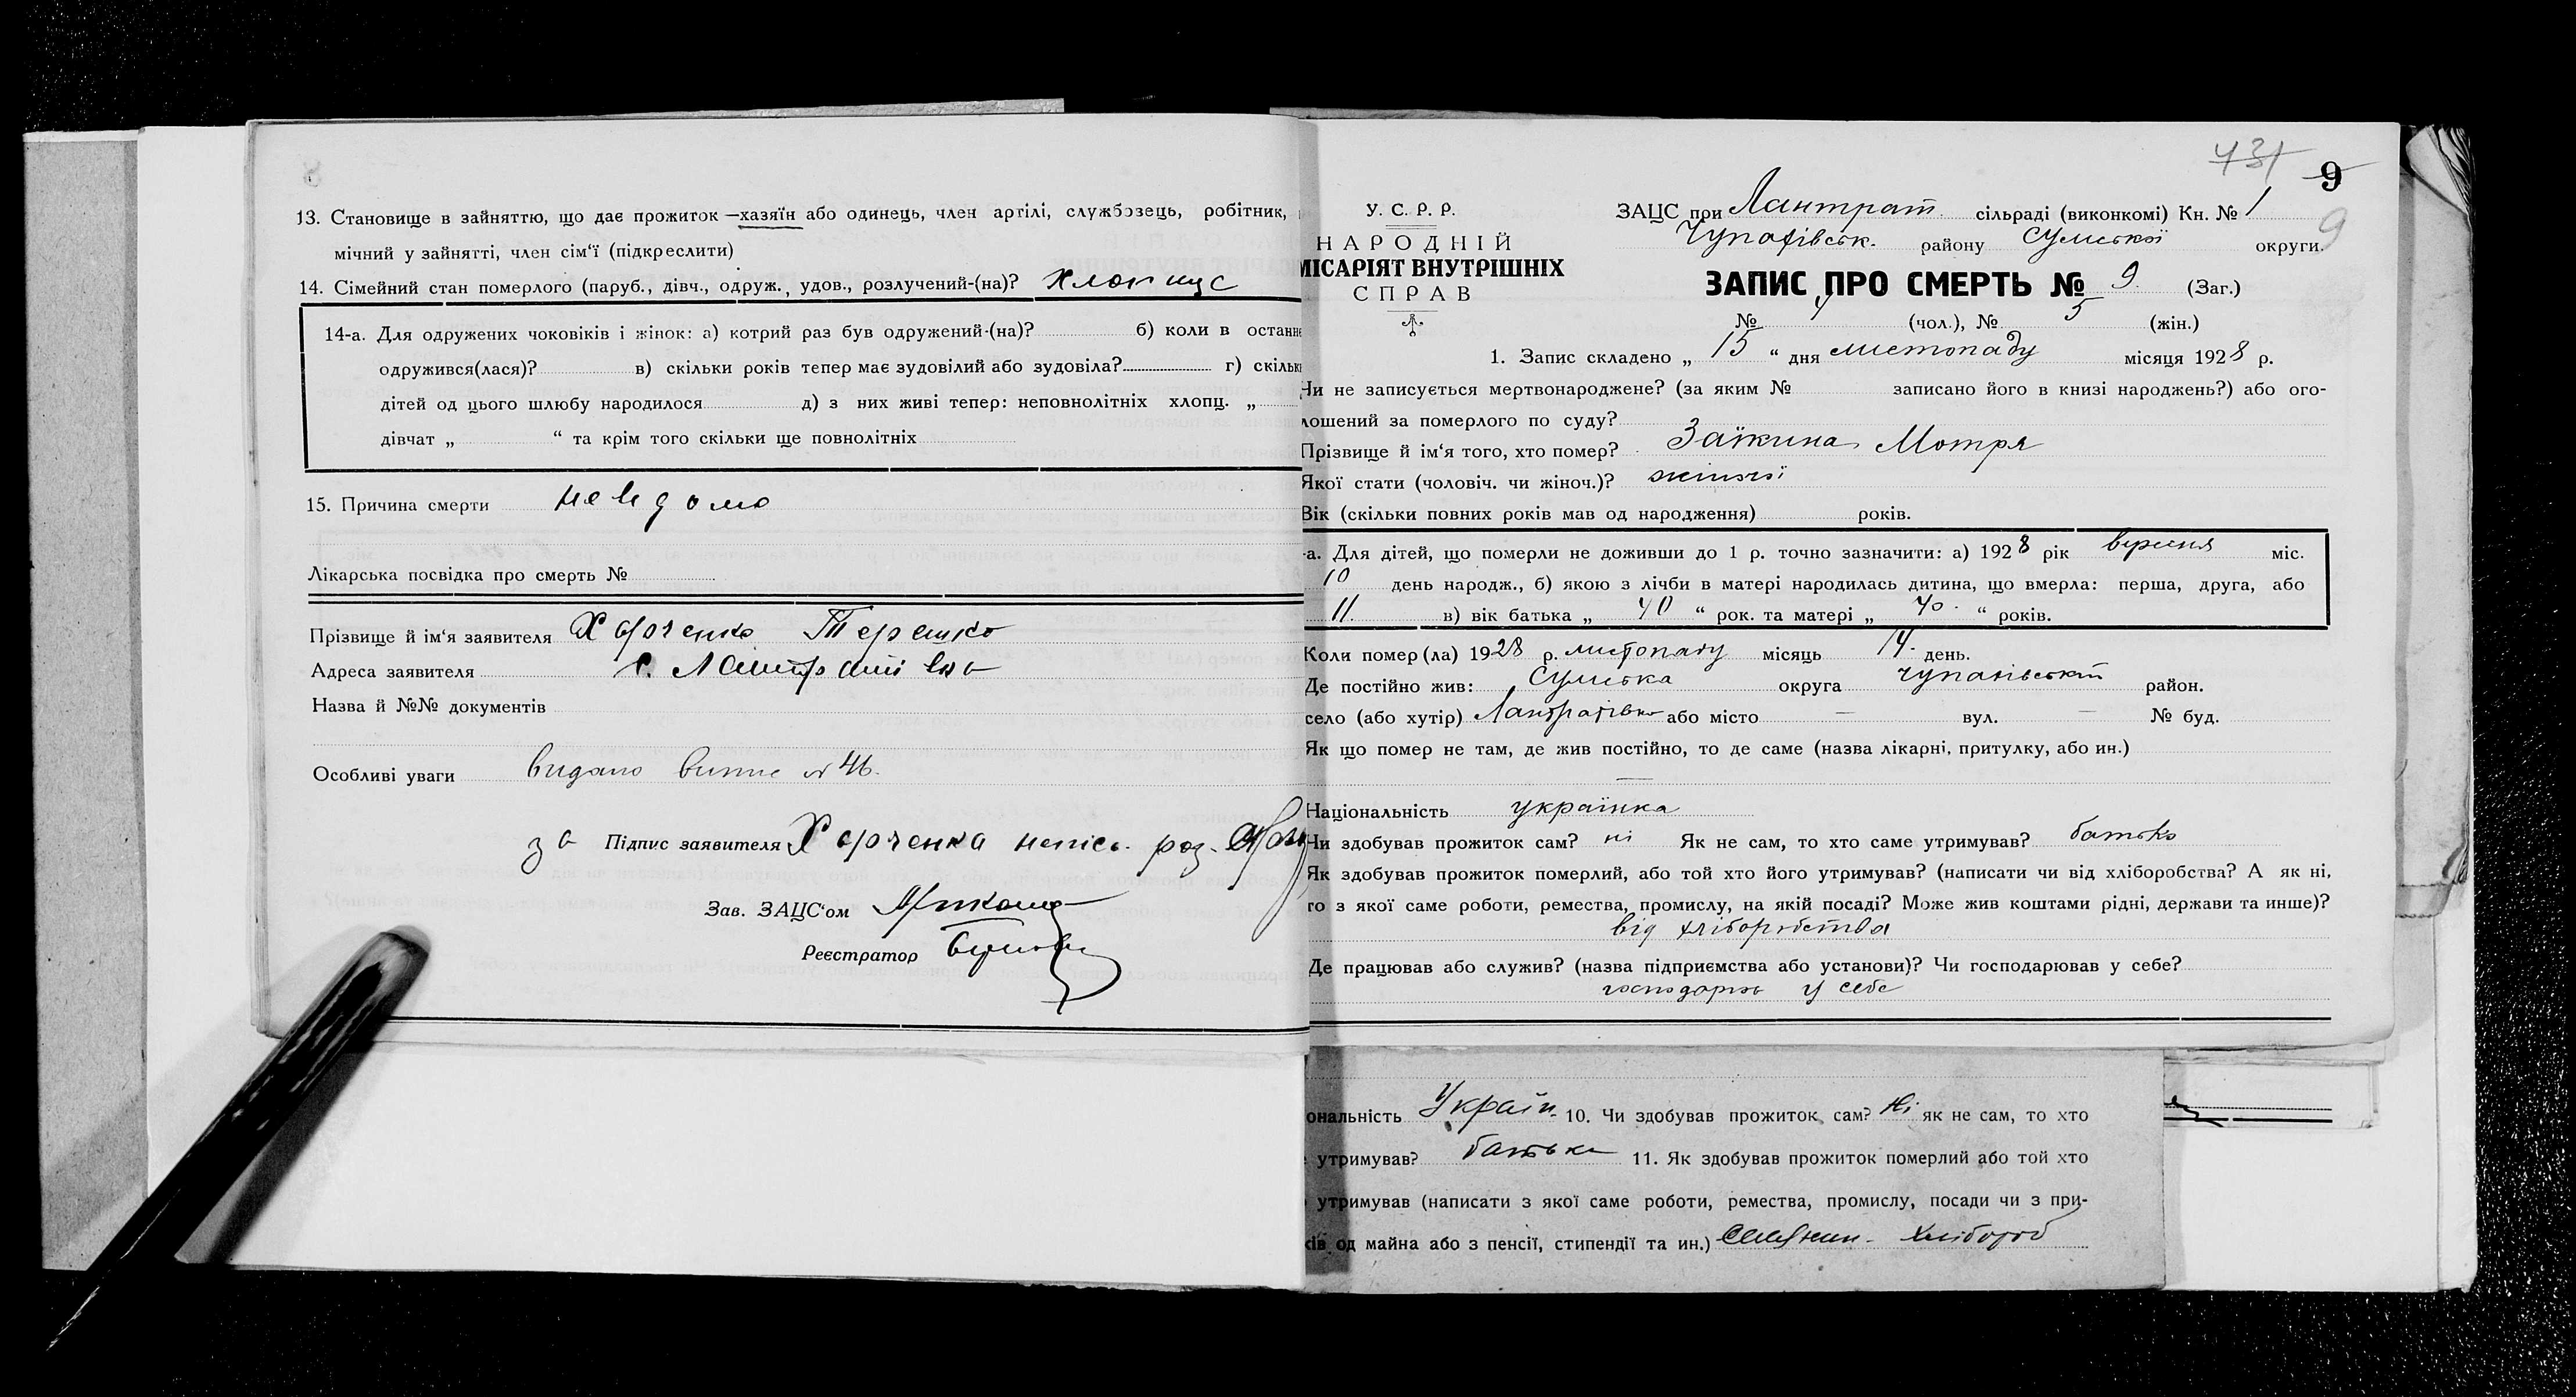 13. Становище в зайняттю, що дає прожиток —хазяїн або одинець, член артілі, службовець, робітник,
мічний у зайнятті, член сім'ї (підкреслити)
14. Сімейний стан померлого (паруб., дівч., одруж., удов., розлучений-(на)? хлопщс
14-а. Для одружених чоковіків і жінок: а) котрий раз був одружений-(на)? б) коли в останнє
одружився(лася)? в) скільки років тепер має зудовілий або зудовіла? г) скільки
дітей од цього шлюбу народилося д) з них живі тепер: неповнолітніх хлопц. „
дівчат „ “ та крім того скільки ще повнолітніх
15. Причина смерти невідомо
Лікарська посвідка про смерть №
Прізвище й ім'я заявителя Харченко Терешко
Адреса заявителя с. Лантратівка
Назва й №№ документів
Особливі уваги видано випис № 46.
за Підпис заявителя Харченка непісь. роз.
Зав. ЗАЦС'ом
Реєстратор
431 9
9
У. С. Р. Р.
НАРОДНІЙ
МІСАРІЯТ ВНУТРІШНІХ
СПРАВ
ЗАЦС при Лантрат. сільраді (виконкомі) Кн. № 1
Чупахівськ. району Сумської округи.
ЗАПИС ПРО СМЕРТЬ № 9 (Заг.)
№ 4 (чол.), № 5 (жін.)
1. Запис складено „ 15 “ дня листопаду місяця 1928 р.
Чи не записується мертвонароджене? (за яким № записано його в книзі народжень?) або ого-
лошений за померлого по суду?
Прізвище й ім'я того, хто помер? Заїкина Мотря
Якої стати (чоловіч. чи жіноч.)? жіночої
Вік (скільки повних років мав од народження) років.
-а. Для дітей, що померли не доживши до 1 р. точно зазначити: а) 1928 рік вересня міс.
10 день народж., б) якою з лічби в матері народилась дитина, що вмерла: перша, друга, або
11. в) вік батька „ 40 “ рок. та матері „ 40. “ років.
Коли помер(ла) 1928 р. листопаду місяць 14. день.
Де постійно жив: Сумська округа Чупахівський район.
село (або хутір) Лантратівка або місто — вул. — № буд.
Як що помер не там, де жив постійно, то де саме (назва лікарні, притулку, або ин.)
—
Національність українка
Чи здобував прожиток сам? ні Як не сам, то хто саме утримував? батько
Як здобував прожиток померлий, або той хто його утримував? (написати чи від хліборобства? А як ні,
то з якої саме роботи, ремества, промислу, на якій посаді? Може жив коштами рідні, держави та инше)?
від хліборобства
Де працював або служив? (назва підприємства або установи)? Чи господарював у себе?
господарює у себе
ональність Україн. 10. Чи здобував прожиток сам? Ні як не сам, то хто
утримував? батько 11. Як здобував прожиток померлий або той хто
утримував (написати з якої саме роботи, ремества, промислу, посади чи з при-
ків од майна або з пенсії, стипендії та ин.) Селянин- хлібороб